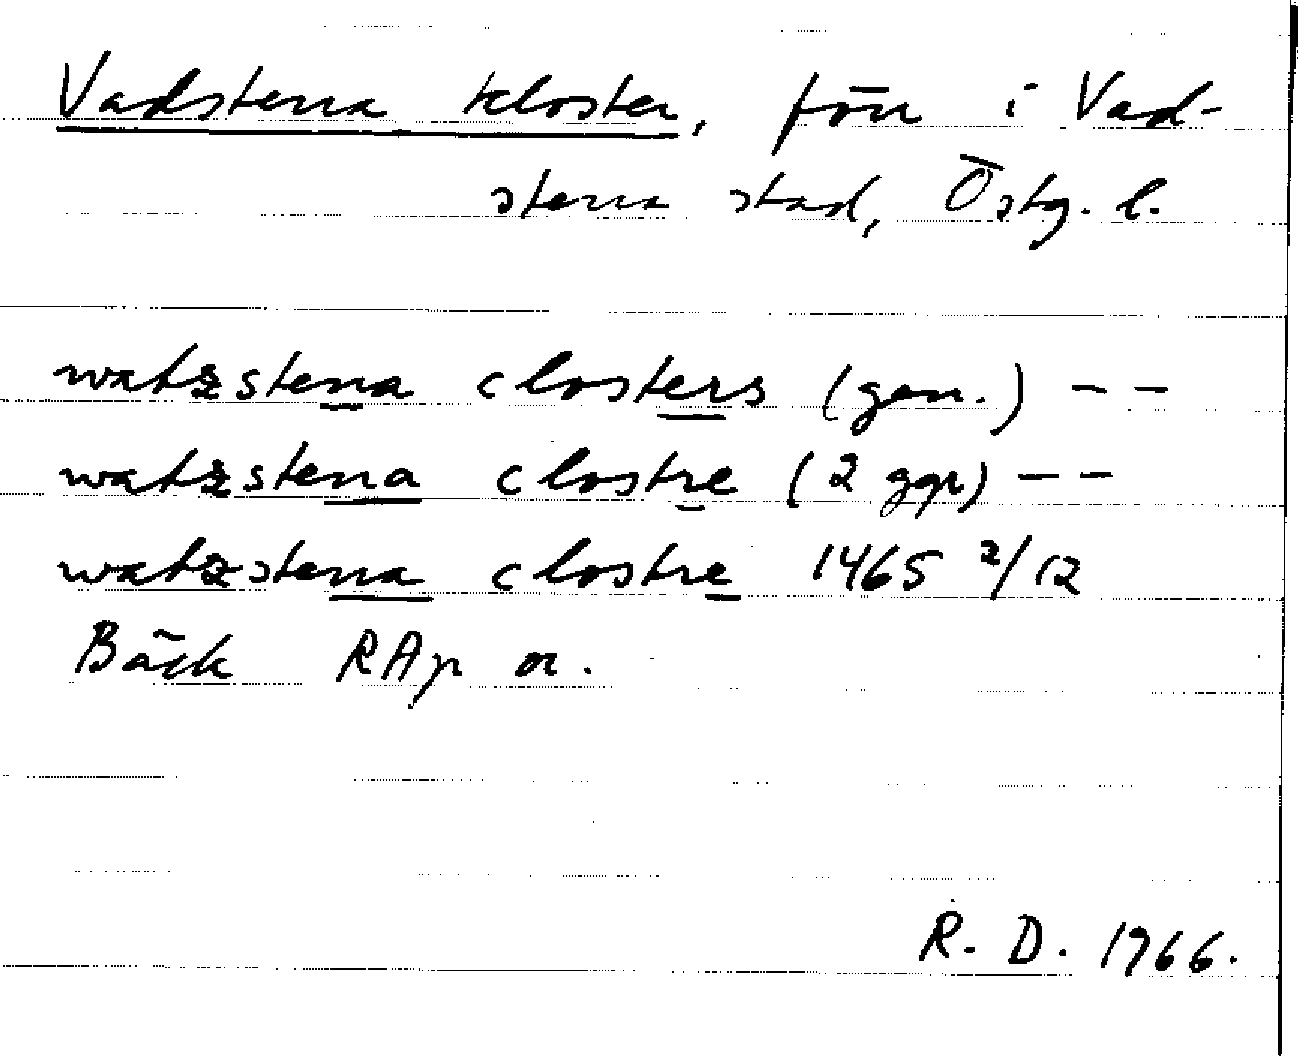 Vadstena kloster, förr i Vad-
stena stad, Östg. l.
watzstena closters (gen.) – –
watzstena clostre (2 ggr) – –
watzstena clostre 1465 2/12
Bäck RAp or.
R. D. 1966.